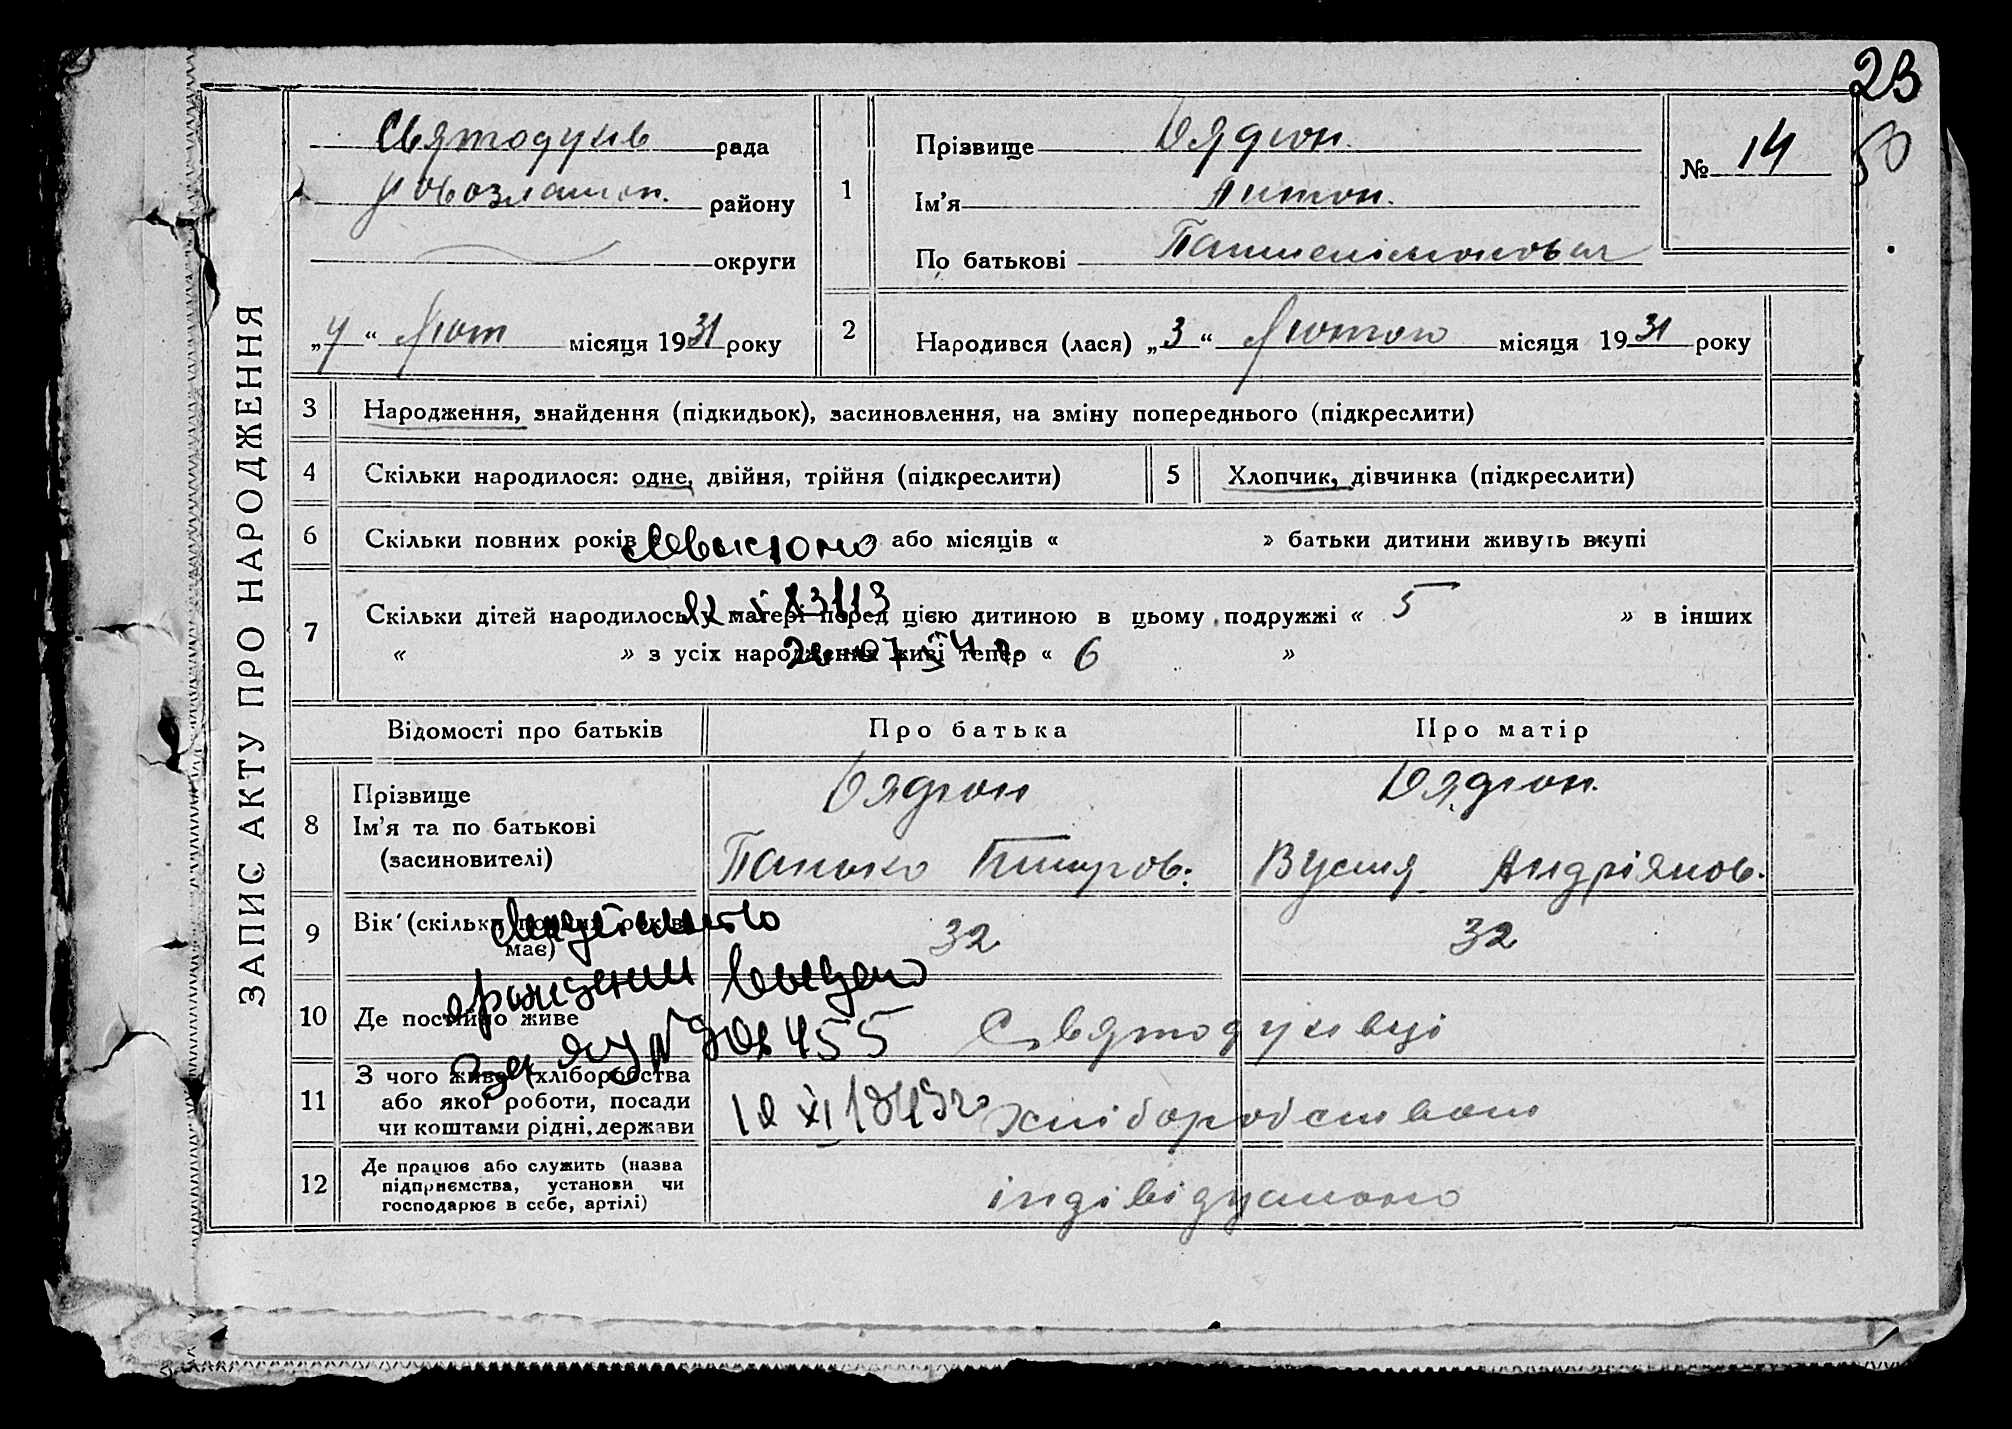 23
50
ЗАПИС АКТУ ПРО НАРОДЖЕННЯ
Святодухів рада
Новозлатоп. району
округи
„4“ Лют місяця 1931 року
1
Прізвище Дядюн.
Ім’я Антон.
По батькові Пантелімонович
№ 14
2
Народився (лася) „3“ Лютого місяця 1931 року
3
Народження, знайдення (підкидьок), засиновлення, на зміну попереднього (підкреслити)
4
Скільки народилося: одне, двійня, трійня (підкреслити)
5
Хлопчик, дівчинка (підкреслити)
6
Скільки повних років або місяців « » батьки дитини живуть вкупі
7
Скільки дітей народилось у матері перед цією дитиною в цьому подружжі « 5 » в інших
« » з усіх народжених живі тепер « 6 »
Відомості про батьків
Про батька
Про матір
8
Прізвище
Ім’я та по батькові
(засиновителі)
Дядюн
Панько
Дядюн.
Вустя Андріянов.
9
Вік (скільки повних років
має)
32
32
Свидетельство
о рождении выдано
10
Де постійно живе
Святодухівці
11
З чого живе (хліборобства
або якої роботи, посади
чи коштами рідні, держави
хліборобством
12
Де працює або служить (назва
підприємства, установи чи
господарює в себе, артілі)
індівідуально